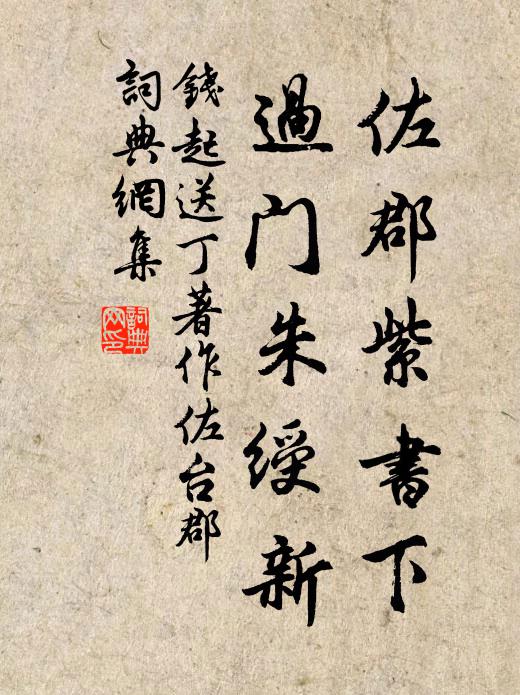 佐郡紫書下
過门朱綬新
錢起送丁著作佐台郡
詞典網集
詞典网印